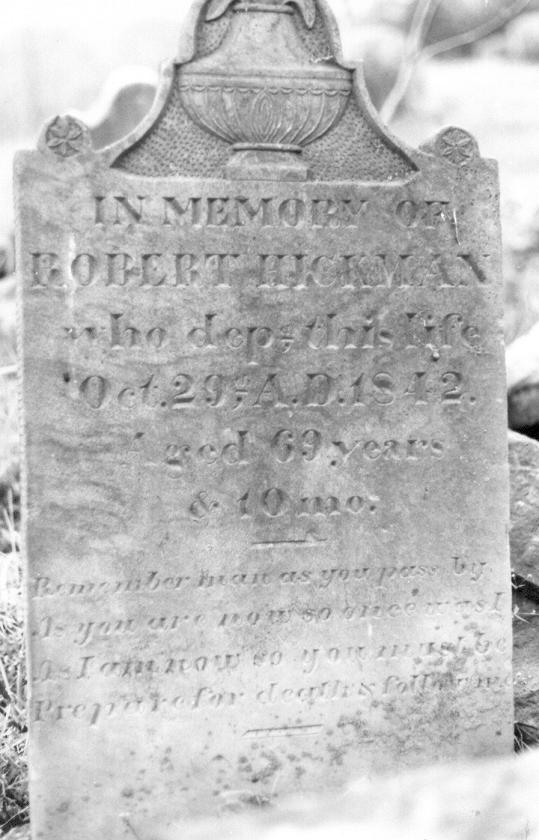 IN MEMORY OF
ROBERT HICKMAN
who dep; this life
Oct. 29; A.D. 1842.
Aged 69 years
& 10 mo:
Remember man as you pass by
As you are now so once was I
As I am now so you must be
Prepare for death & follow me